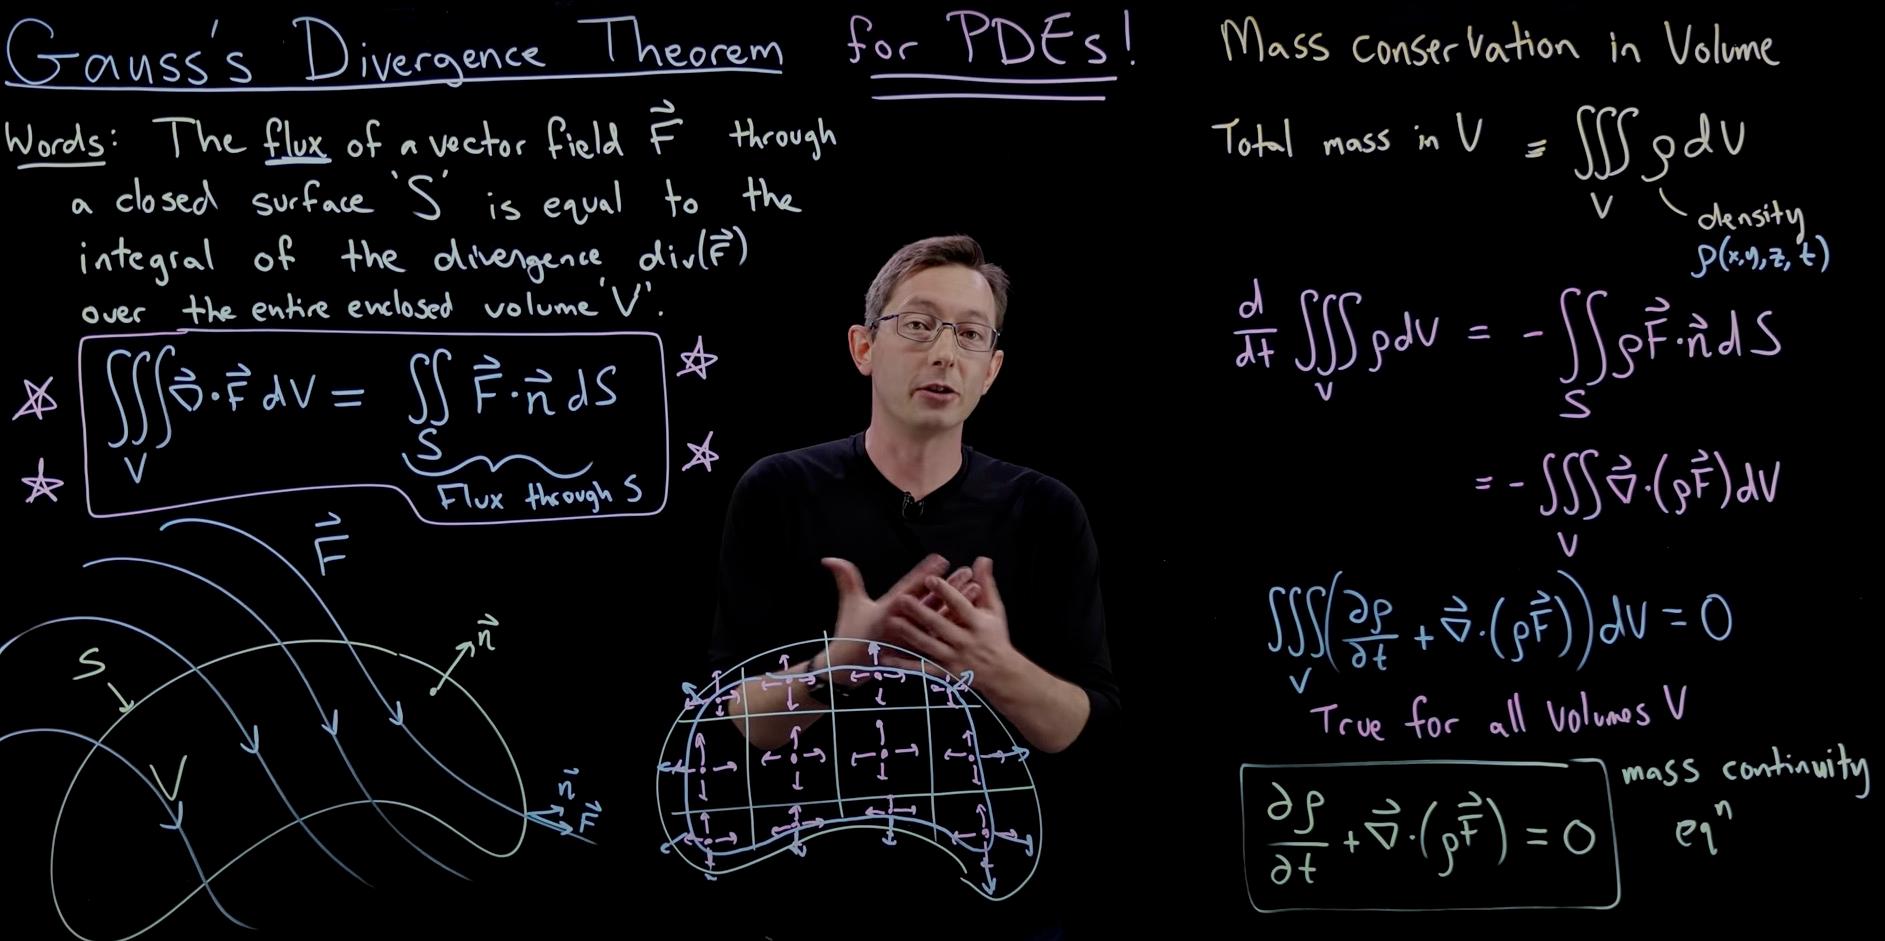 Gauss's Divergence Theorem for PDEs!
Words: The flux of a vector field F⃗ through
a closed surface 'S' is equal to the
integral of the divergence div(F⃗)
over the entire enclosed volume 'V'.
∭_V ∇⃗·F⃗ dV = ∬_S F⃗·n⃗ dS
Flux through S
F⃗
n⃗
S
V
n⃗
F⃗
Mass conservation in Volume
Total mass in V = ∭_V ρ dV
density
ρ(x,y,z,t)
d/dt ∭_V ρ dV = -∬_S ρF⃗·n⃗ dS
= -∭_V ∇⃗·(ρF⃗) dV
∭_V (∂ρ/∂t + ∇⃗·(ρF⃗)) dV = 0
True for all Volumes V
∂ρ/∂t + ∇⃗·(ρF⃗) = 0
mass continuity
eqⁿ